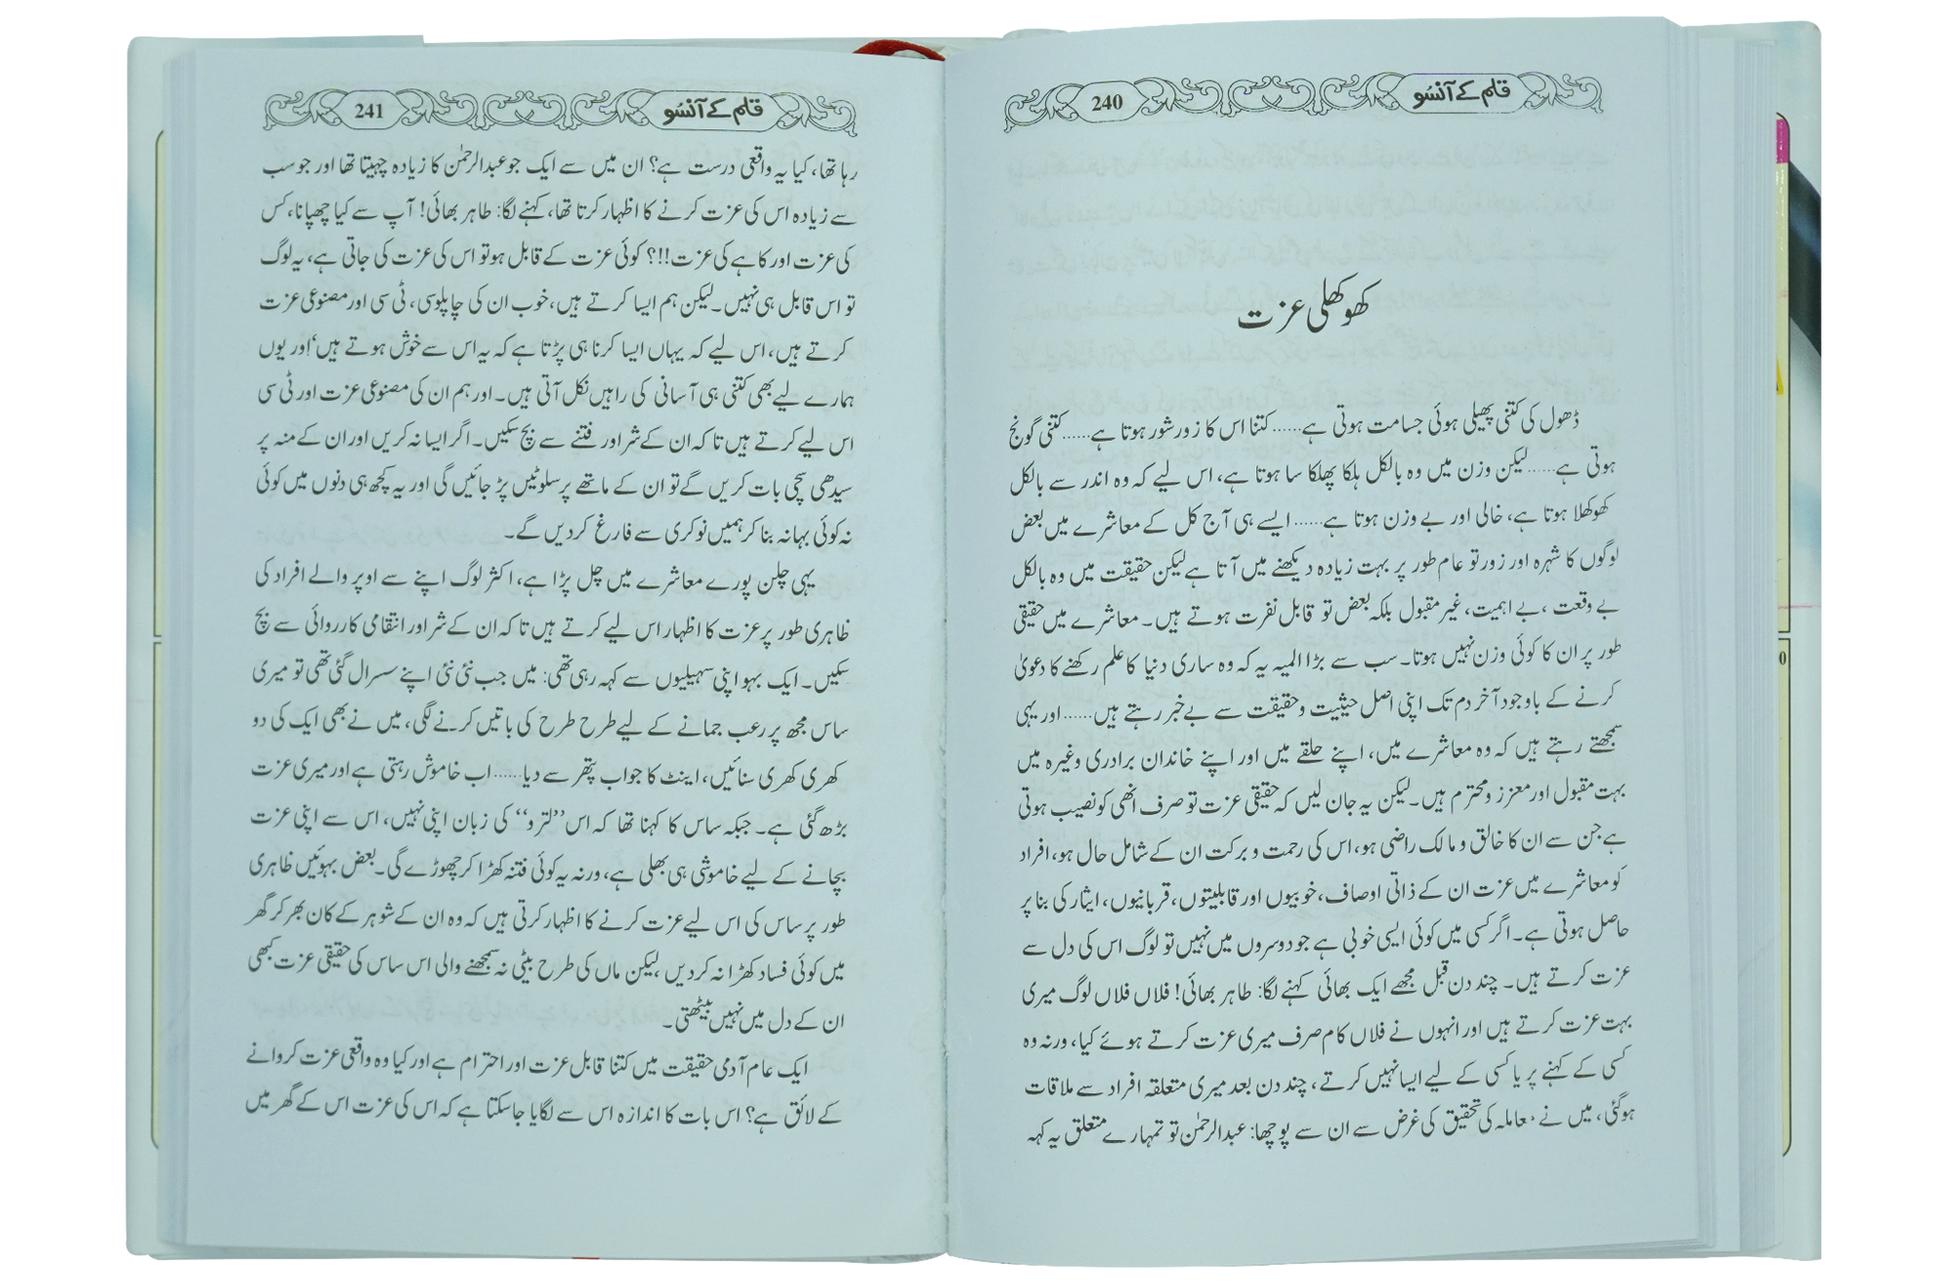 240
قلم کے آنسُو
کھوکھلی عزت
ڈھول کی کتنی پھیلی ہوئی جسامت ہوتی ہے......کتنا اس کا زورشور ہوتا ہے......کتنی گونج
ہوتی ہے......لیکن وزن میں وہ بالکل ہلکا پھلکا سا ہوتا ہے، اس لیے کہ وہ اندر سے بالکل
کھوکھلا ہوتا ہے، خالی اور بے وزن ہوتا ہے......ایسے ہی آج کل کے معاشرے میں بعض
لوگوں کا شہرہ اور زور تو عام طور پر بہت زیادہ دیکھنے میں آتا ہے لیکن حقیقت میں وہ بالکل
بے وقعت، بے اہمیت، غیر مقبول بلکہ بعض تو قابل نفرت ہوتے ہیں۔ معاشرے میں حقیقی
طور پر ان کا کوئی وزن نہیں ہوتا۔ سب سے بڑا المیہ یہ کہ وہ ساری دنیا کا علم رکھنے کا دعویٰ
کرنے کے باوجود آخر دم تک اپنی اصل حیثیت و حقیقت سے بے خبر رہتے ہیں......اور یہی
سمجھتے رہتے ہیں کہ وہ معاشرے میں، اپنے حلقے میں اور اپنے خاندان برادری وغیرہ میں
بہت مقبول اور معزز و محترم ہیں۔ لیکن یہ جان لیں کہ حقیقی عزت تو صرف انھی کو نصیب ہوتی
ہے جن سے ان کا خالق و مالک راضی ہو، اس کی رحمت و برکت ان کے شامل حال ہو، افراد
کو معاشرے میں عزت ان کے ذاتی اوصاف، خوبیوں اور قابلیتوں، قربانیوں، ایثار کی بنا پر
حاصل ہوتی ہے۔ اگر کسی میں کوئی ایسی خوبی ہے جو دوسروں میں نہیں تو لوگ اس کی دل سے
عزت کرتے ہیں۔ چند دن قبل مجھے ایک بھائی کہنے لگا: طاہر بھائی! فلاں فلاں لوگ میری
بہت عزت کرتے ہیں اور انہوں نے فلاں کام صرف میری عزت کرتے ہوئے کیا، ورنہ وہ
کسی کے کہنے پر یا کسی کے لیے ایسا نہیں کرتے، چند دن بعد میری متعلقہ افراد سے ملاقات
ہوگئی، میں نے معاملہ کی تحقیق کی غرض سے ان سے پوچھا: عبدالرحمٰن تو تمہارے متعلق یہ کہہ
241
قلم کے آنسُو
رہا تھا، کیا یہ واقعی درست ہے؟ ان میں سے ایک جو عبدالرحمٰن کا زیادہ چہیتا تھا اور جو سب
سے زیادہ اس کی عزت کرنے کا اظہار کرتا تھا، کہنے لگا: طاہر بھائی! آپ سے کیا چھپانا، کس
کی عزت اور کاہے کی عزت!!؟ کوئی عزت کے قابل ہو تو اس کی عزت کی جاتی ہے، یہ لوگ
تو اس قابل ہی نہیں۔ لیکن ہم ایسا کرتے ہیں، خوب ان کی چاپلوسی، ٹی سی اور مصنوعی عزت
کرتے ہیں، اس لیے کہ یہاں ایسا کرنا ہی پڑتا ہے کہ یہ اس سے خوش ہوتے ہیں‘ اور یوں
ہمارے لیے بھی کتنی ہی آسانی کی راہیں نکل آتی ہیں۔ اور ہم ان کی مصنوعی عزت اور ٹی سی
اس لیے کرتے ہیں تا کہ ان کے شر اور فتنے سے بچ سکیں۔ اگر ایسا نہ کریں اور ان کے منہ پر
سیدھی سچی بات کریں گے تو ان کے ماتھے پر سلوٹیں پڑ جائیں گی اور یہ کچھ ہی دنوں میں کوئی
نہ کوئی بہانہ بنا کر ہمیں نوکری سے فارغ کر دیں گے۔
یہی چلن پورے معاشرے میں چل پڑا ہے، اکثر لوگ اپنے سے اوپر والے افراد کی
ظاہری طور پر عزت کا اظہار اس لیے کرتے ہیں تا کہ ان کے شر اور انتقامی کارروائی سے بچ
سکیں۔ ایک بہو اپنی سہیلیوں سے کہہ رہی تھی: میں جب نئی نئی اپنے سسرال گئی تھی تو میری
ساس مجھ پر رعب جمانے کے لیے طرح طرح کی باتیں کرنے لگی، میں نے بھی ایک کی دو
کھری کھری سنائیں، اینٹ کا جواب پتھر سے دیا......اب خاموش رہتی ہے اور میری عزت
بڑھ گئی ہے۔ جبکہ ساس کا کہنا تھا کہ اس ’’لترو‘‘ کی زبان اپنی نہیں، اس سے اپنی عزت
بچانے کے لیے خاموشی ہی بھلی ہے، ورنہ یہ کوئی فتنہ کھڑا کر چھوڑے گی۔ بعض بہوئیں ظاہری
طور پر ساس کی اس لیے عزت کرنے کا اظہار کرتی ہیں کہ وہ ان کے شوہر کے کان بھر کر گھر
میں کوئی فساد کھڑا نہ کر دیں، لیکن ماں کی طرح بیٹی نہ سمجھنے والی اس ساس کی حقیقی عزت کبھی
ان کے دل میں نہیں بیٹھتی۔
ایک عام آدمی حقیقت میں کتنا قابل عزت اور احترام ہے اور کیا وہ واقعی عزت کروانے
کے لائق ہے؟ اس بات کا اندازہ اس سے لگایا جا سکتا ہے کہ اس کی عزت اس کے گھر میں